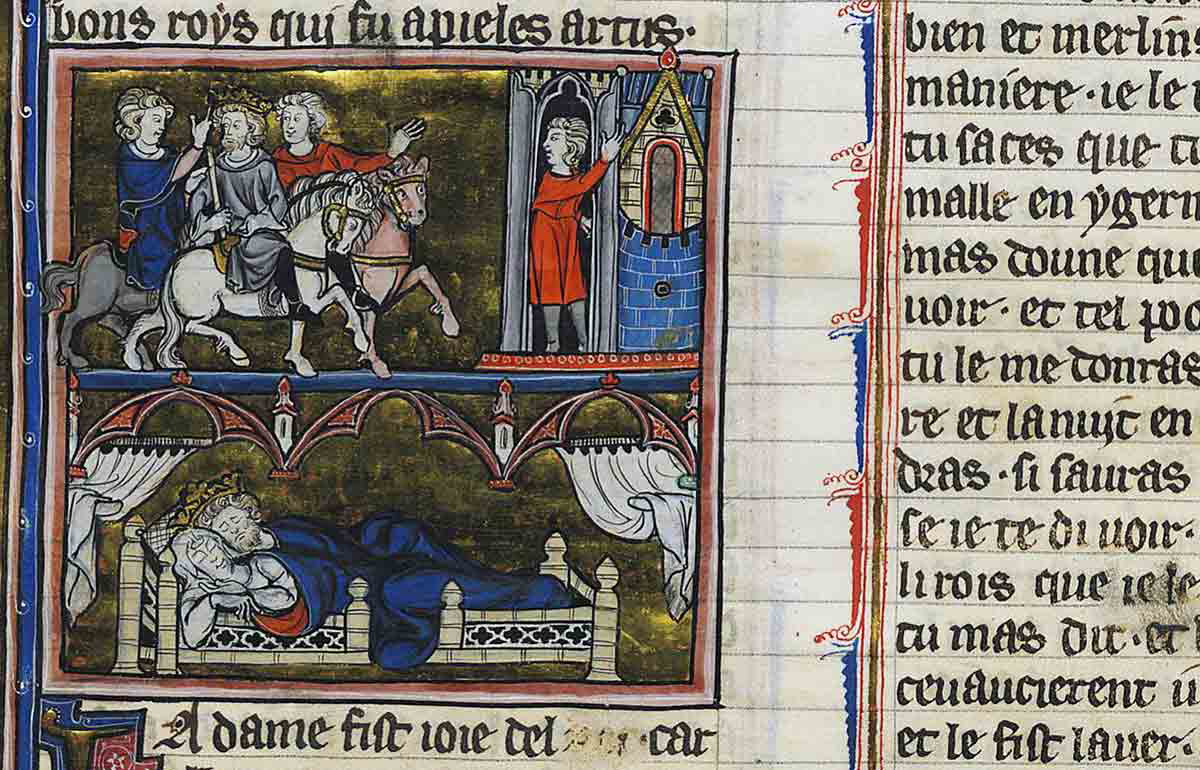 bons roys qui fu apieles artus·
A dame fist ioie del · car
bien et merlin
maniere · ie le
tu saces que tu
malle en ygern
mas doune que
uoir · et tel poo
tu le me donras
re et la nuit en
dras · si sauras
se ie te di uoir·
li rois que ie le
tu mas dit · et
ceuaucierent
et le fist lauer·